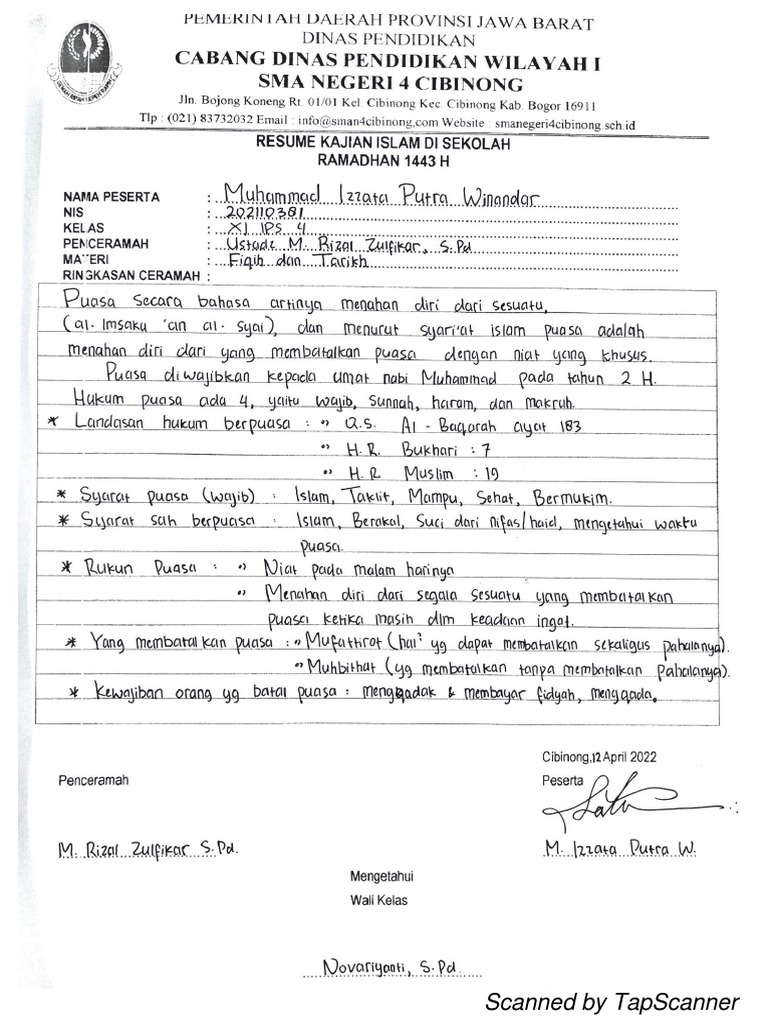 PEMERINTAH DAERAH PROVINSI JAWA BARAT
DINAS PENDIDIKAN
CABANG DINAS PENDIDIKAN WILAYAH I
SMA NEGERI 4 CIBINONG
Jln. Bojong Koneng Rt. 01/01 Kel. Cibinong Kec. Cibinong Kab. Bogor 16911
Tlp : (021) 83732032 Email : info@sman4cibinong.com Website : smanegeri4cibinong.sch.id
RESUME KAJIAN ISLAM DI SEKOLAH
RAMADHAN 1443 H
NAMA PESERTA : Muhammad Izzata Putra Winandar
NIS : 202110381
KELAS : XI IPS 4
PENCERAMAH : Ustadz M. Rizal Zulfikar, S.Pd
MATERI : Fiqih dan Tarikh
RINGKASAN CERAMAH :
Puasa secara bahasa artinya menahan diri dari sesuatu,
(al-Imsaku 'an al-syai), dan menurut syari'at islam puasa adalah
menahan diri dari yang membatalkan puasa dengan niat yang khusus.
Puasa diwajibkan kepada umat nabi Muhammad pada tahun 2 H.
Hukum puasa ada 4, yaitu wajib, sunnah, haram, dan makruh.
* Landasan hukum berpuasa : •) Q.S. Al-Baqarah ayat 183
•) H.R. Bukhari : 7
•) H.R Muslim : 19
* Syarat puasa (wajib) : Islam, Taklit, Mampu, Sehat, Bermukim.
* Syarat sah berpuasa : Islam, Berakal, Suci dari nifas/haid, mengetahui waktu
puasa.
* Rukun Puasa : •) Niat pada malam harinya
•) Menahan diri dari segala sesuatu yang membatalkan
puasa ketika masih dlm keadaan ingat.
* Yang membatalkan puasa : •) Mufattirot (hal² yg dapat membatalkan sekaligus pahalanya).
•) Muhbithat (yg membatalkan tanpa membatalkan pahalanya).
* Kewajiban orang yg batal puasa : mengqadak & membayar fidyah, mengqada.
Cibinong, 12 April 2022
Penceramah
Peserta
M. Rizal Zulfikar S.Pd.
M. Izzata Putra W.
Mengetahui
Wali Kelas
Novariyanti, S.Pd.
Scanned by TapScanner